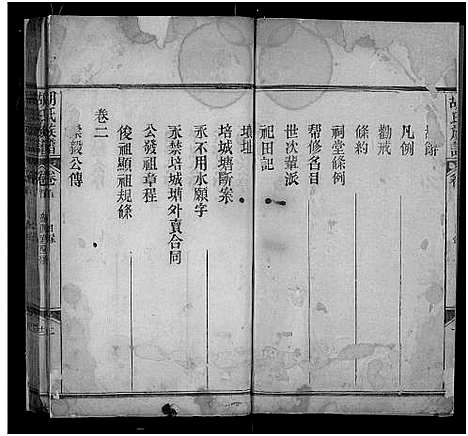 胡氏族譜
凡例
勸戒
條約
祠堂條例
幇修名目
世次輩派
祀田記
墳址
培城塘斷案
永不用水願字
永禁培城塘外賣合同
公發祖章程
俊祖顯祖規條
卷二
毅公傳
胡氏族譜